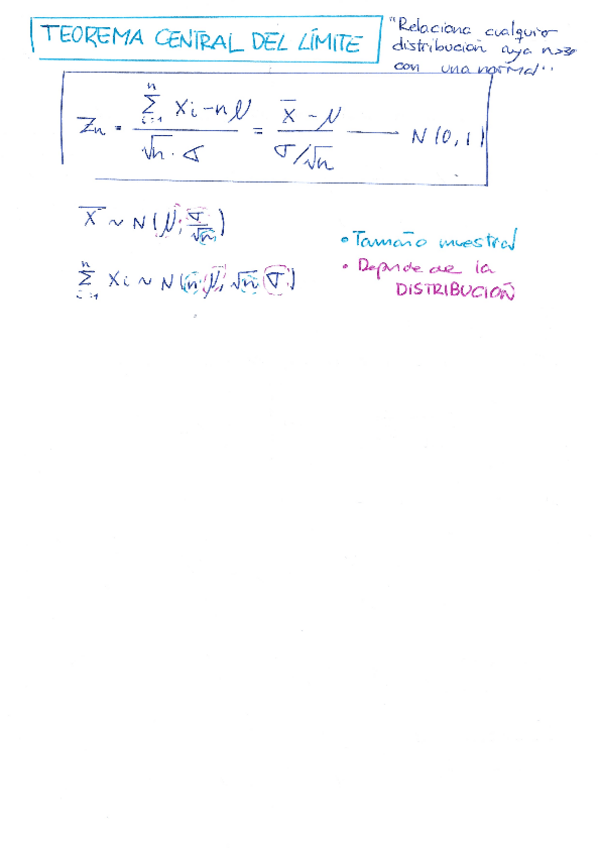 TEOREMA CENTRAL DEL LÍMITE
"Relaciona cualquier
distribución cuya n>30
con una normal"
Zn = (∑_{i=1}^{n} Xi - nμ) / (√n · σ) = (X̄ - μ) / (σ/√n) —— N(0,1)
X̄ ~ N(μ; σ/√n)
∑_{i=1}^{n} Xi ~ N(n·μ; √n σ)
• Tamaño muestral
• Depende de la
DISTRIBUCIÓN